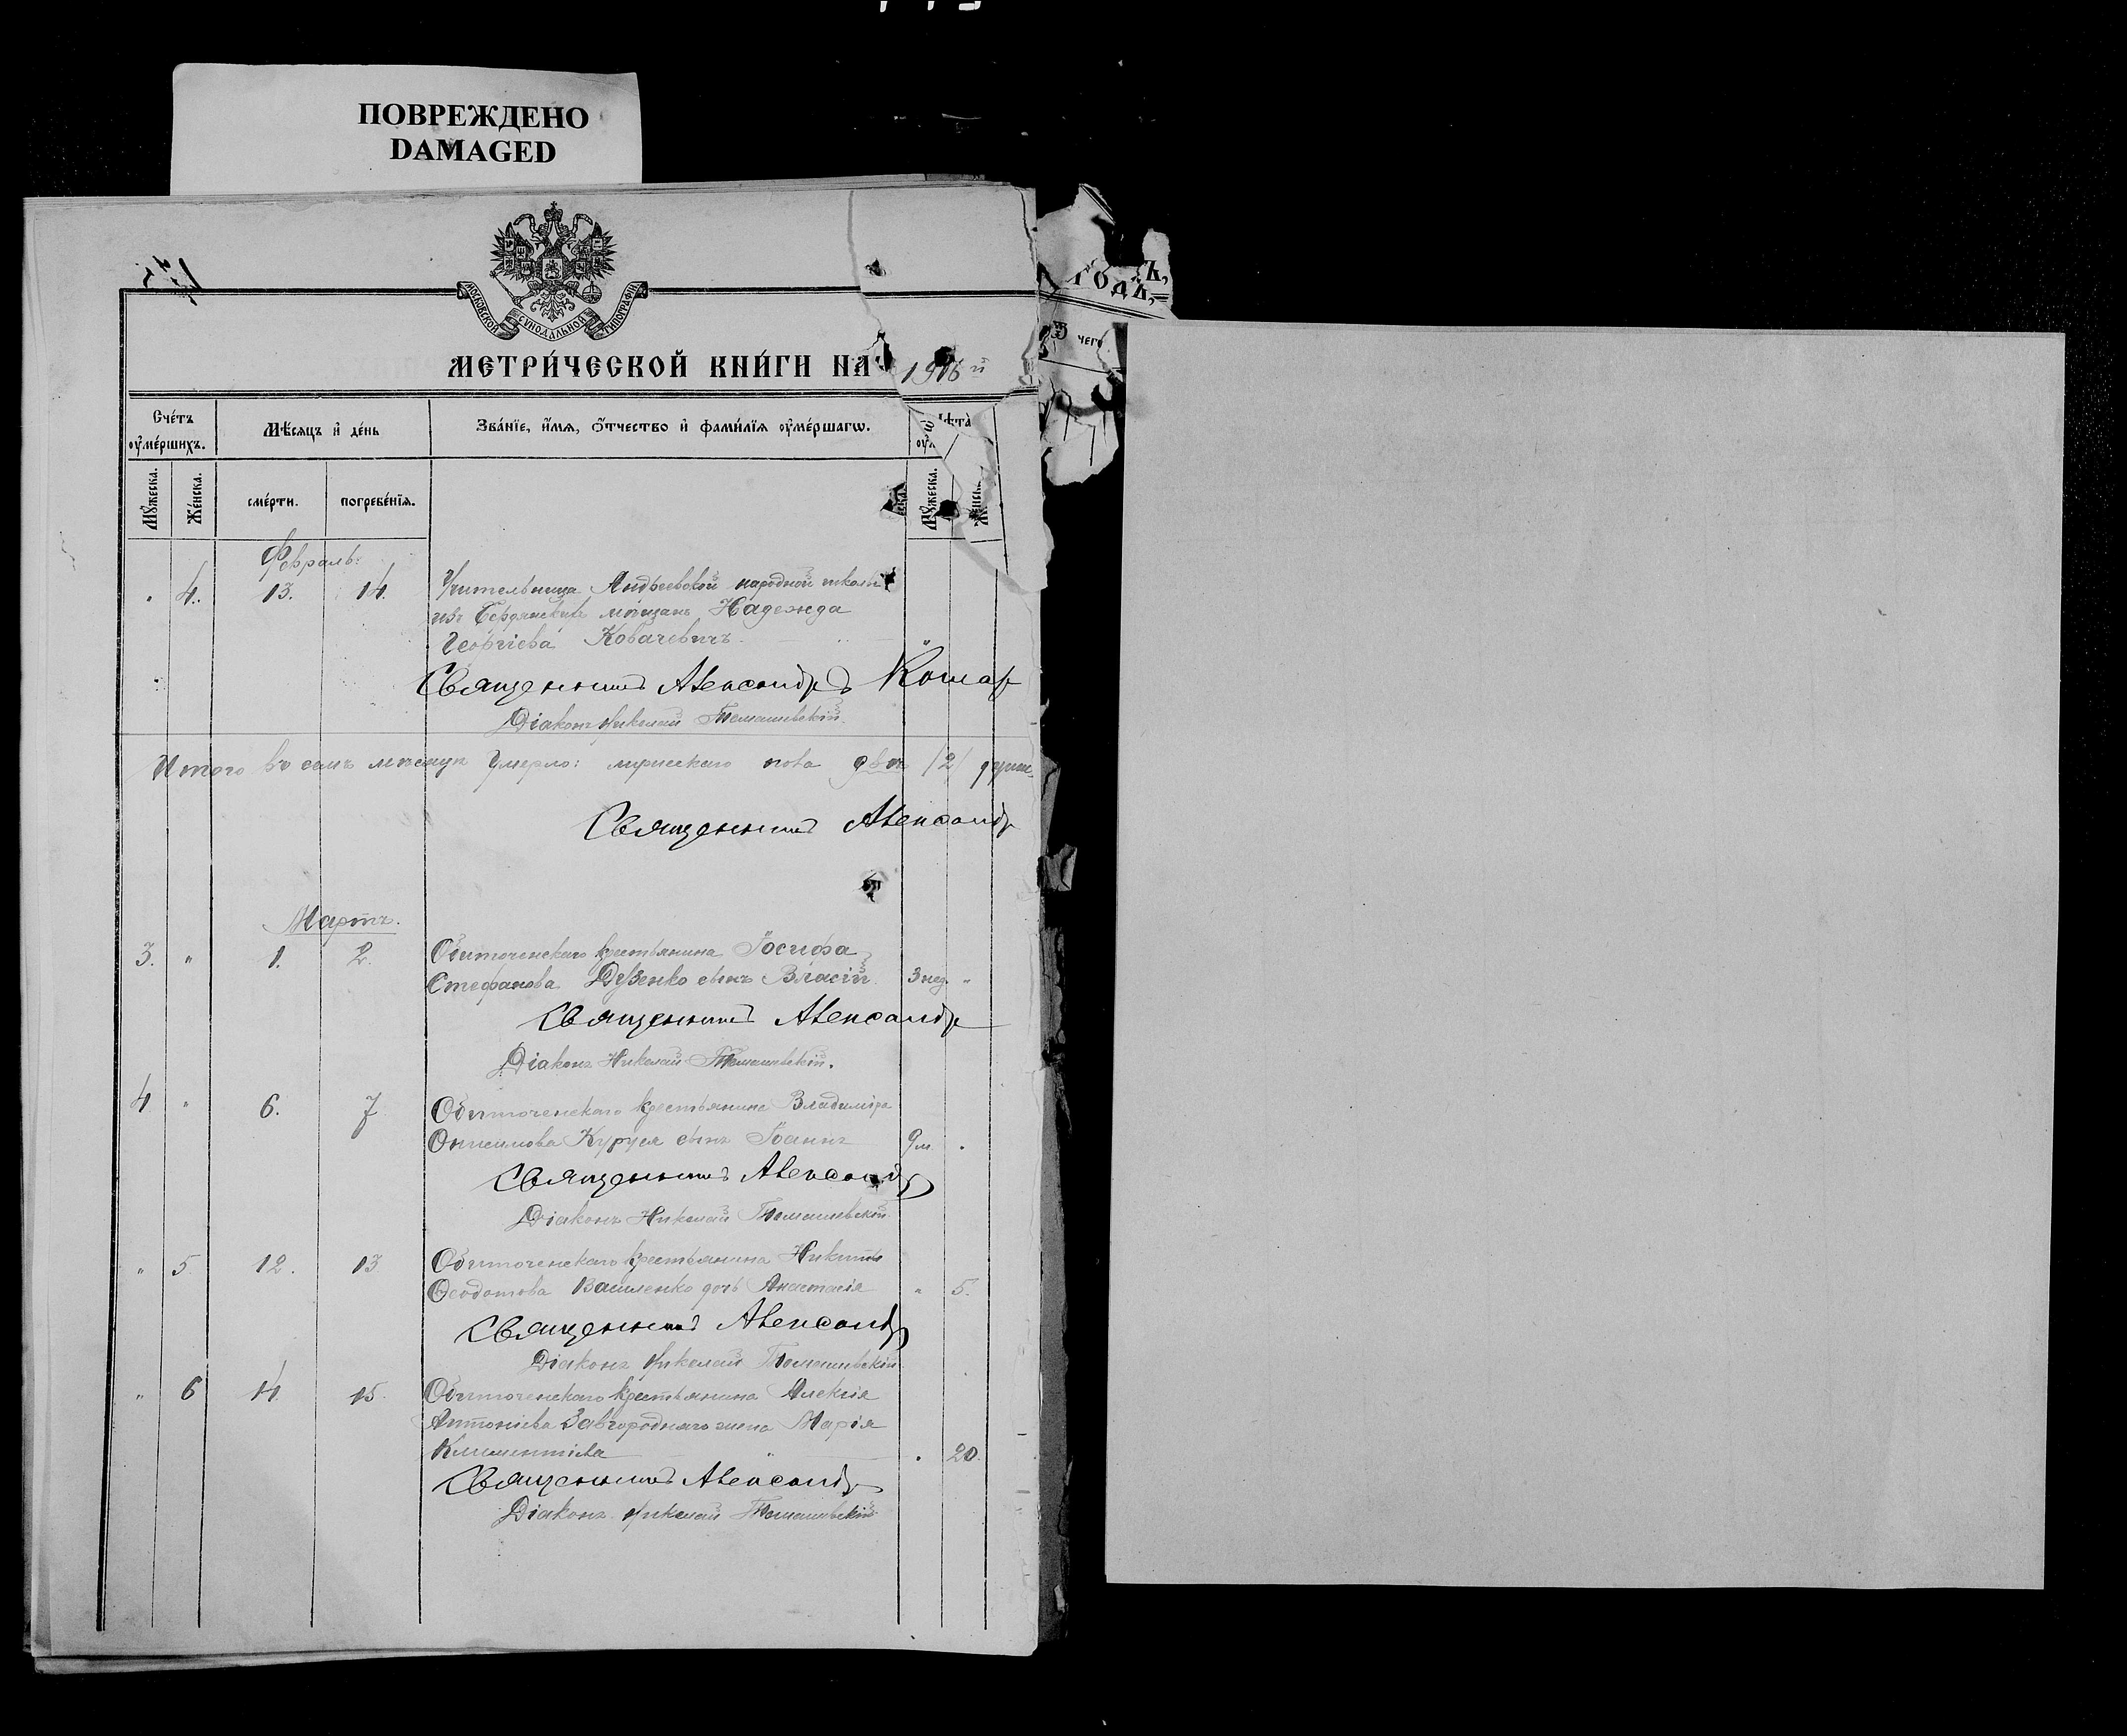 ПОВРЕЖДЕНО
DAMAGED
МОСКОВСКОЙ СѴНОДАЛЬНОЙ ТИПОГРАФІИ
МЕТРИ́ЧЕСКОЙ КНИ́ГИ НА 1916й
ГОДЪ,
Сче́тъ ᲂу҆ме́ршихъ.
Мѣ́сяцъ и҆ де́нь
Зва́нїе, и҆́мѧ, ѻ҆́тчество и҆ фами́лїѧ ᲂу҆ме́ршагѡ.
Лѣта̀
чегѡ
Мꙋ́жеска.
Же́нска.
сме́рти.
погребе́нїѧ.
Мꙋ́жеска.
Же́нска.
Февраль:
" 4. 13. 14. Учительница Андреевской народной школы
изъ Бердянскихъ мѣщанъ Надежда
Георгіева Ковачевичъ. "
Священникъ Александръ Комар
Діаконъ Николай Томашевскій.
Итого въ семъ мѣсяцѣ умерло: мужескаго пола двѣ /2/ души
Священникъ Александр
Мартъ.
3. " 1. 2. Обиточенскаго крестьянина Іосифа
Стефанова сынъ Власій 3 нед. "
Священникъ Александр
Діаконъ Николай Томашевскій.
4 " 6. 7 Обиточенскаго крестьянина Владиміра
Онисимова сынъ Іоаннъ 9 м "
Священникъ Александр
Діаконъ Николай Томашевскій
" 5 12. 13 Обиточенскаго крестьянина Никиты
Ѳеодотова Василенко дочь Анастасія " 5.
Священникъ Александр
Діаконъ Николай Томашевскій
" 6 14. 15. Обиточенскаго крестьянина Алексія
Антоніева Завгородняго жена Марія
Климентіева " 20.
Священникъ Александр
Діаконъ Николай Томашевскій